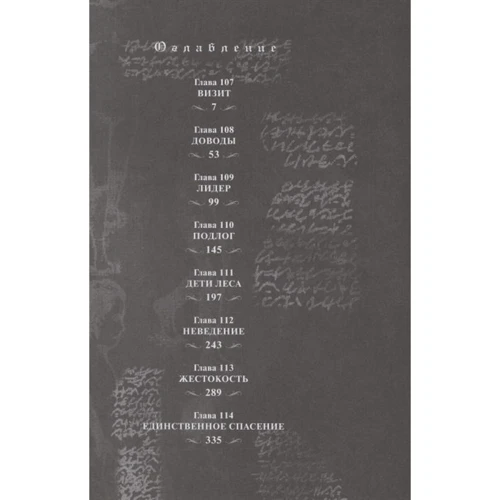 Оглавление
Глава 107
ВИЗИТ
7
Глава 108
ДОВОДЫ
53
Глава 109
ЛИДЕР
99
Глава 110
ПОДЛОГ
145
Глава 111
ДЕТИ ЛЕСА
197
Глава 112
НЕВЕДЕНИЕ
243
Глава 113
ЖЕСТОКОСТЬ
289
Глава 114
ЕДИНСТВЕННОЕ СПАСЕНИЕ
335